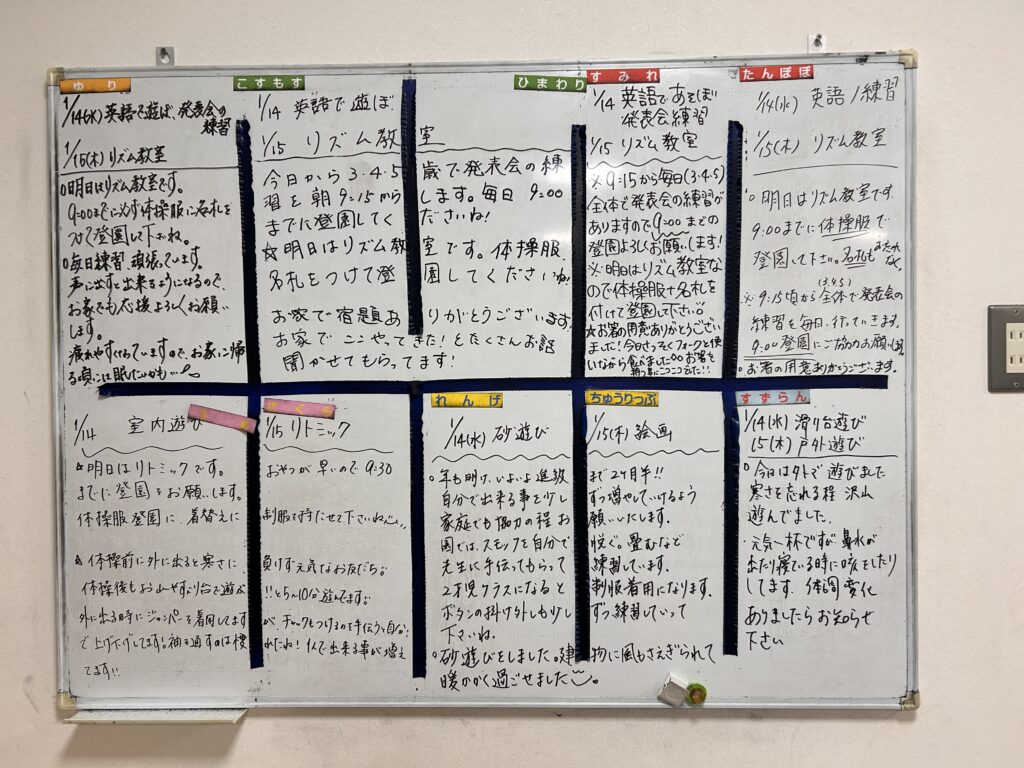 ゆり
1/14(水) 英語で遊ぼ、発表会の
練習
1/15(木) リズム教室
○明日はリズム教室です。
9:00までに必ず体操服に名札を
つけて登園して下さいね。
○毎日練習、頑張っています。
声に出すと出来るようになるので、
お家でも応援よろしくお願い
します。
疲れやすくなっていますので、お家に帰
る頃には眠たいかも…
こすもす
ひまわり
1/14 英語で遊ぼ
1/15 リズム教室
今日から3・4・5歳で発表会の練
習を朝9:15からします。毎日 9:00
までに登園してくださいね!
☆明日はリズム教室です。体操服
名札をつけて登園してくださいね!
お家で宿題ありがとうございます!
お家で ここやってきた!とたくさんお話
聞かせてもらってます!
すみれ
1/14 英語であそぼ
発表会練習
1/15 リズム教室
※9:15から毎日(3・4・5)
全体で発表会の練習が
ありますので9:00までの
登園よろしくお願いします!
※明日はリズム教室な
ので体操服+名札を
付けて登園して下さい○
☆お箸の用意ありがとうござい
ました!今日さっそくフォークと使
いながら食べました○○お箸を
持つ事にニコニコでした!!
たんぽぽ
1/14(水) 英語/練習
1/15(木) リズム教室
○明日はリズム教室です。
9:00までに体操服で
登園して下さい。名札も忘れなく
(3.4.5)
※9:15頃から全体で発表会の
練習を毎日、行っていきます。
9:00登園にご協力お願いします。
○お箸の用意ありがとうございます。
さくら
1/14 室内遊び
1/15 リトミック
☆明日はリトミックです。おやつが早いので9:30
までに登園をお願いします。
体操服登園に、着替えに制服を持たせて下さいね
☆体操前に外に出ると寒さに負けず元気なお友だち。
体操後もお山やすべり台で遊ぶ!!と5~10分遊んでます。
外に出る時にジャンパーを着用してますが、チャックをつけるのを手伝うと自分
で上げ下げしてます!袖を通すのは慣れたね!1人で出来る事が増え
てます!!
れんげ
ちゅうりっぷ
1/14(水) 砂遊び
1/15(木) 絵画
○年も明け、いよいよ進級まで2ヶ月半!!
自分で出来る事を少しずつ増やしていけるよう
家庭でも協力の程お願いいたします。
園では、スモックを自分で脱ぐ。畳むなど
先生に手伝ってもらって練習しています。
2才児クラスになると制服着用になります。
ボタンの掛け外しも少しずつ練習していって
下さいね。
○砂遊びをしました。建物に風もさえぎられて
暖かく過ごせました。
すずらん
1/14(水) 滑り台遊び
15(木) 戸外遊び
○今日は外で遊びました
寒さを忘れる程 沢山
遊んでました.
・元気一杯ですが鼻水が
出たり寝ている時に咳をしたり
してます。体調変化
ありましたらお知らせ
下さい